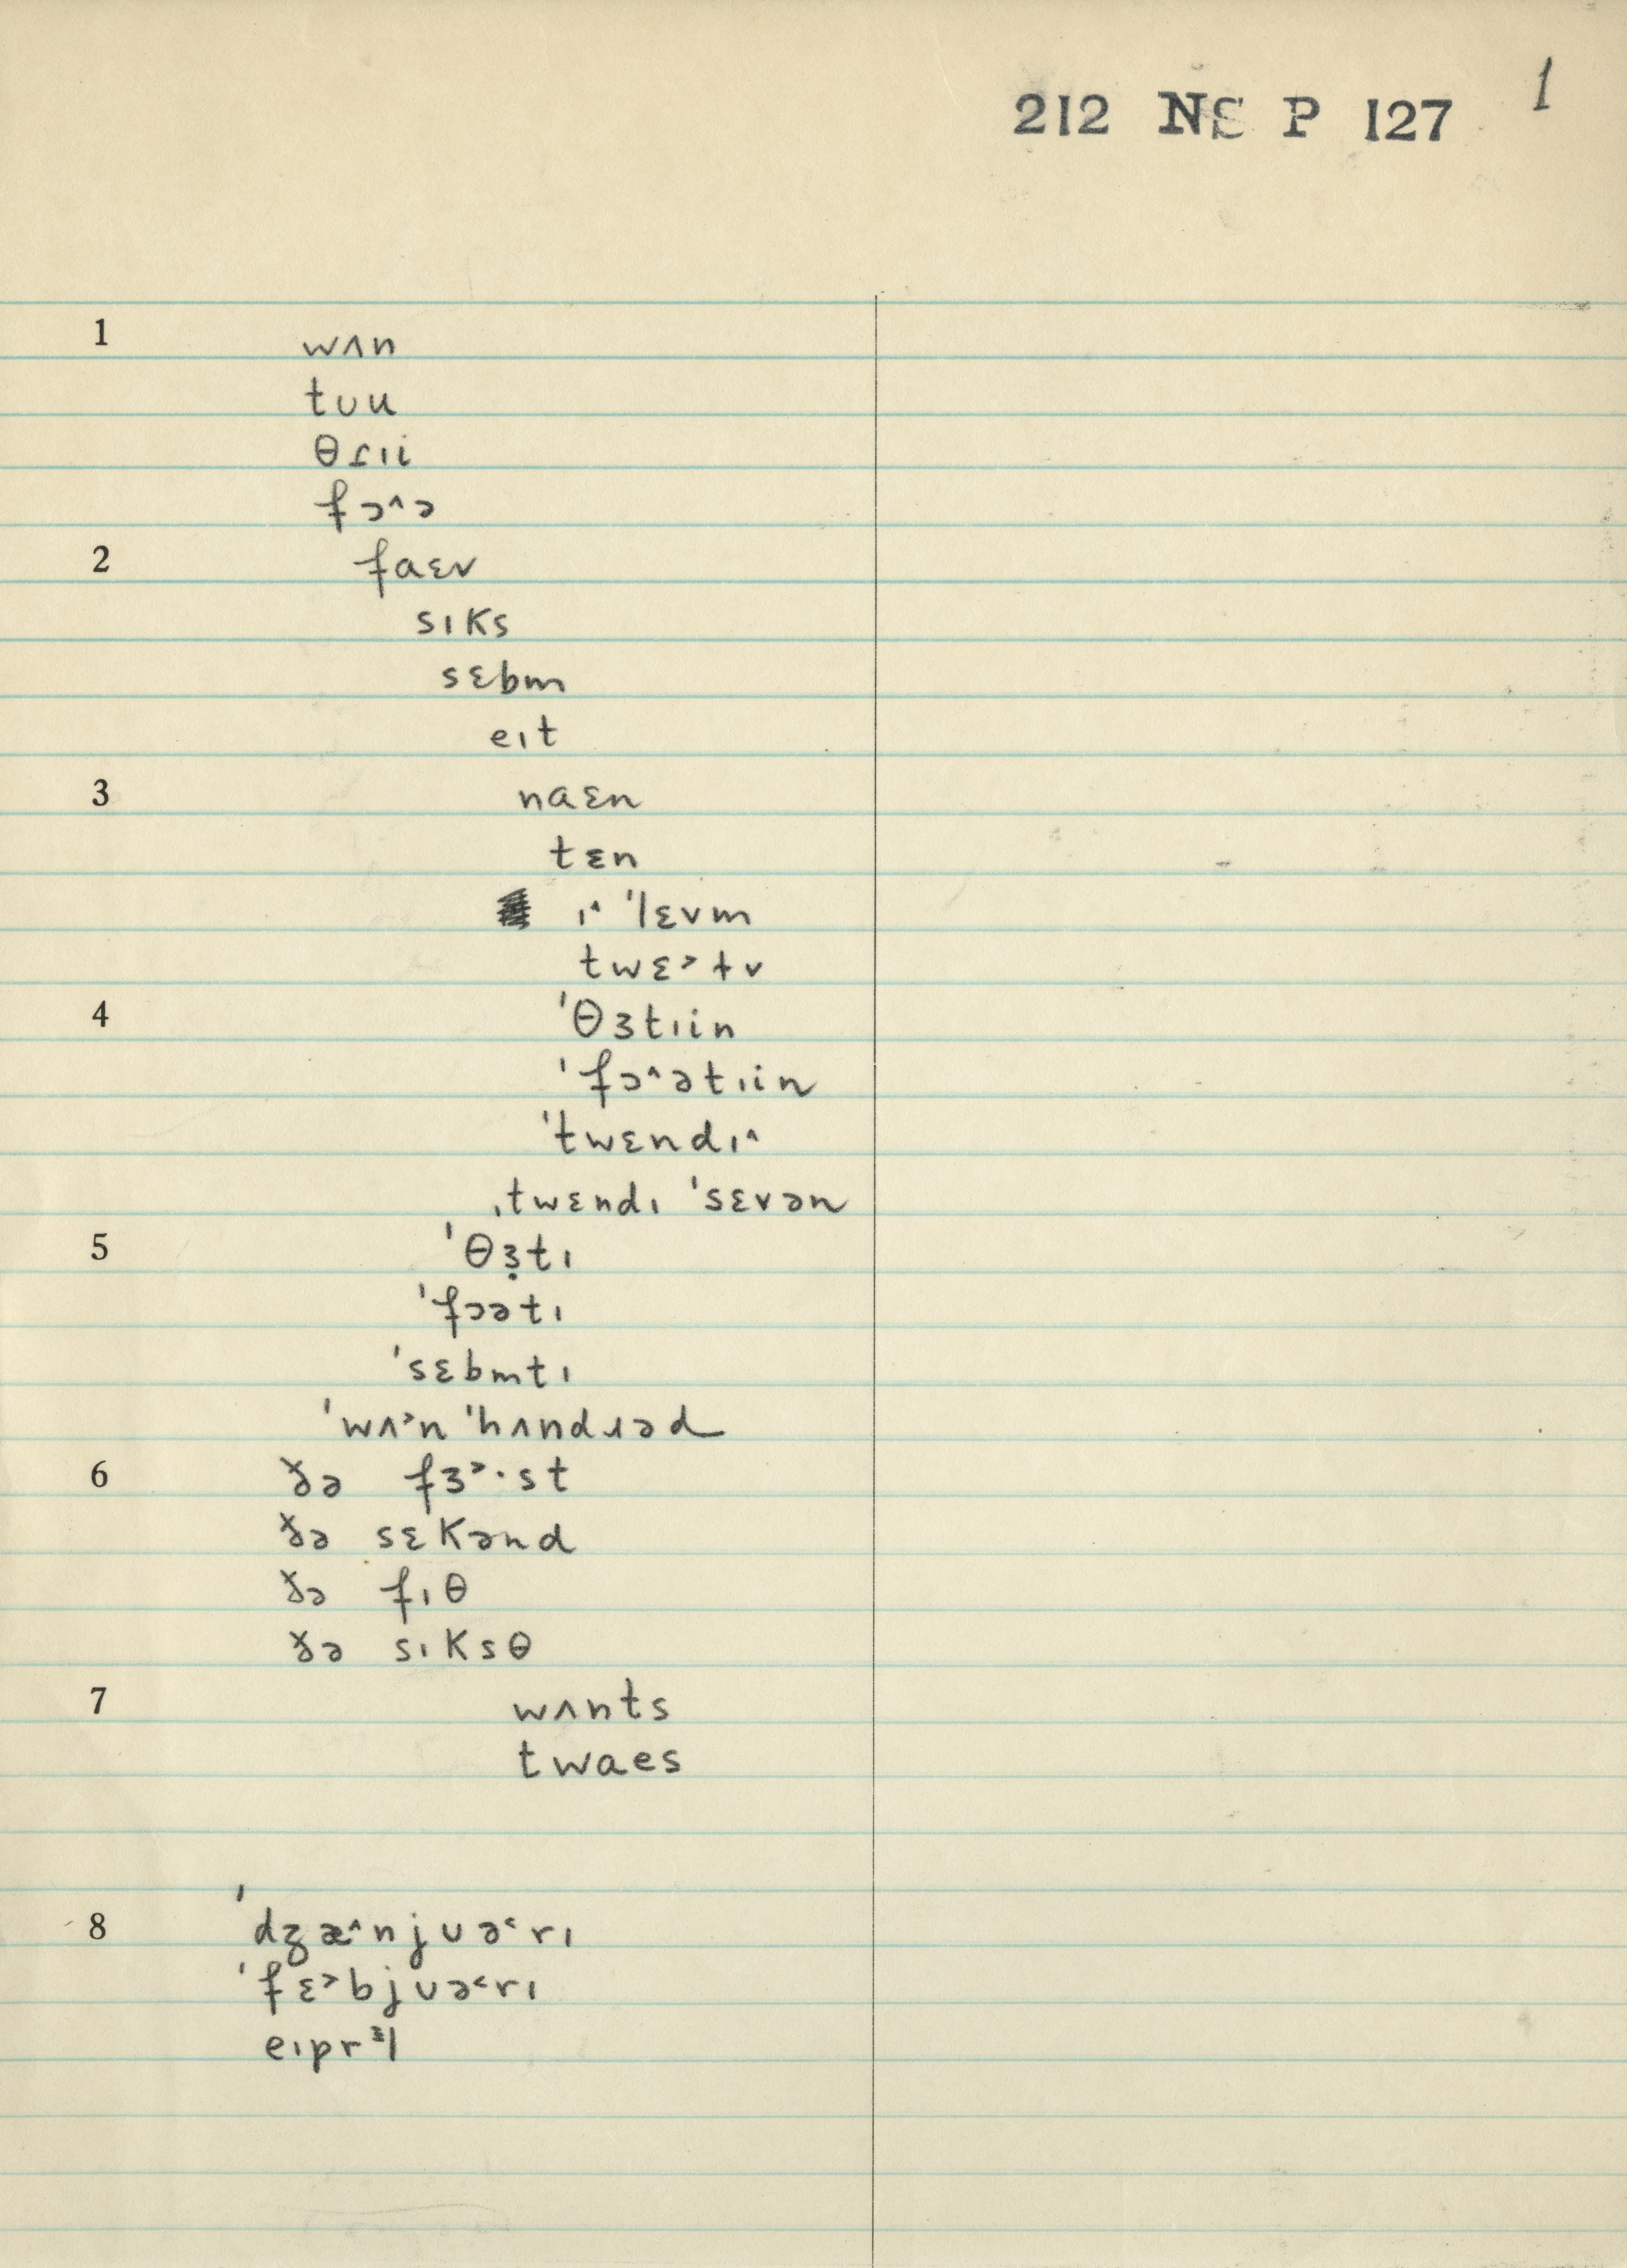 212 NS P 127 1
1 wʌn
tʊu
θɾıi
fɔ^ə
2 faɛv
sıks
sɛbm
eıt
3 naɛn
tɛn
ı^ 'lɛvm
twɛ>tv
4 'θɜtıin
'fɔ^ətıin
'twɛndı^
ˌtwɛndı 'sɛvən
5 'θɜ̣tı
'fɔətı
'sɛbmtı
'wʌ>n 'hʌndɹəd
6 ðə fɜ>·st
ðə sɛkənd
ðə fıθ
ðə sıksθ
7 wʌnts
twaes
8 'dʒæ^njʊə<rı
'fɛ>bjʊə<rı
eıprᵌl